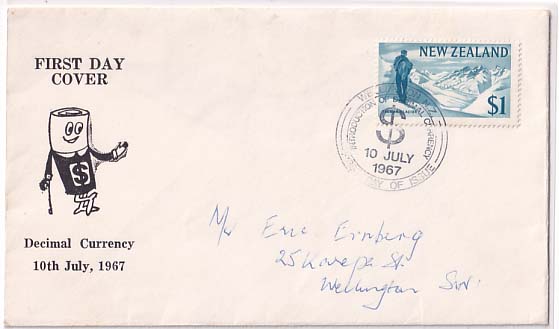 FIRST DAY
COVER
$
Decimal Currency
10th July, 1967
NEW ZEALAND
$1
INTRODUCTION OF DECIMAL CURRENCY
$
10 JULY
1967
DAY OF ISSUE
Mr Eric Ernberg
25 St.
Wellington